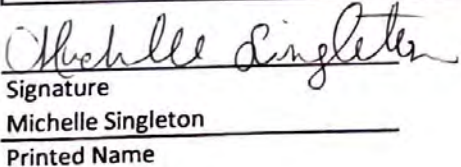 Michelle Singleton
Signature
Michelle Singleton
Printed Name